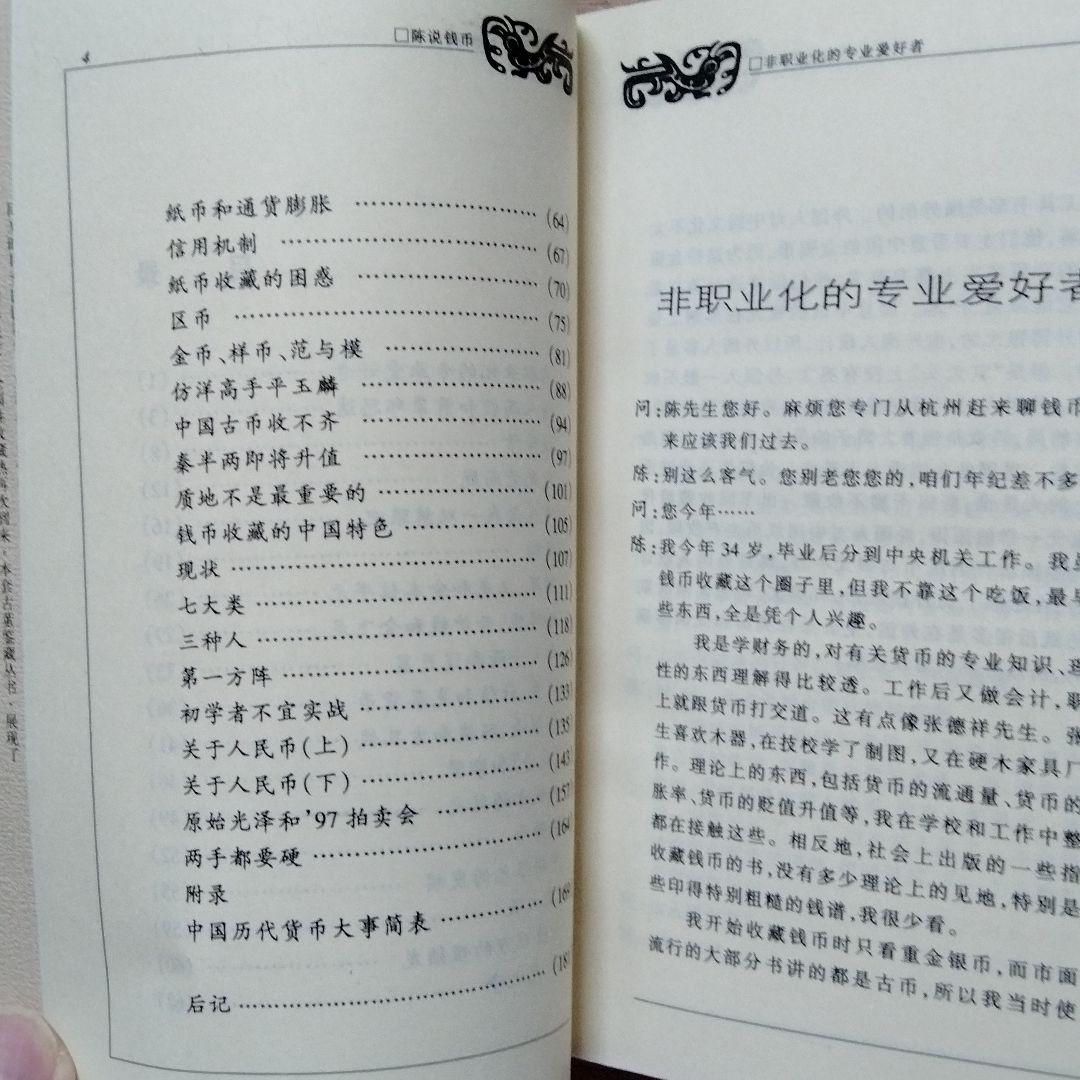 4
□陈说钱币
纸币和通货膨胀 ……………………… (64)
信用机制 ……………………………… (67)
纸币收藏的困惑 ……………………… (70)
区币 …………………………………… (75)
金币、样币、范与模 ………………… (81)
仿洋高手平玉麟 ……………………… (88)
中国古币收不齐 ……………………… (94)
秦半两即将升值 ……………………… (97)
质地不是最重要的 …………………… (101)
钱币收藏的中国特色 ………………… (105)
现状 …………………………………… (107)
七大类 ………………………………… (111)
三种人 ………………………………… (118)
第一方阵 ……………………………… (126)
初学者不宜实战 ……………………… (133)
关于人民币(上) ……………………… (135)
关于人民币(下) ……………………… (143
原始光泽和’97拍卖会 ……………… (157
两手都要硬 …………………………… (164
附录
中国历代货币大事简表 ……………… (169
后记 …………………………………… (18
□非职业化的专业爱好者
非职业化的专业爱好者
问:陈先生您好。麻烦您专门从杭州赶来聊钱币
来应该我们过去。
陈:别这么客气。您别老您您的,咱们年纪差不多
问:您今年……
陈:我今年34岁,毕业后分到中央机关工作。我虽
钱币收藏这个圈子里,但我不靠这个吃饭,最早
些东西,全是凭个人兴趣。
我是学财务的,对有关货币的专业知识、理
性的东西理解得比较透。工作后又做会计,职
上就跟货币打交道。这有点像张德祥先生。张
生喜欢木器,在技校学了制图,又在硬木家具厂
作。理论上的东西,包括货币的流通量、货币的
胀率、货币的贬值升值等,我在学校和工作中整
都在接触这些。相反地,社会上出版的一些指
收藏钱币的书,没有多少理论上的见地,特别是
些印得特别粗糙的钱谱,我很少看。
我开始收藏钱币时只看重金银币,而市面
流行的大部分书讲的都是古币,所以我当时使